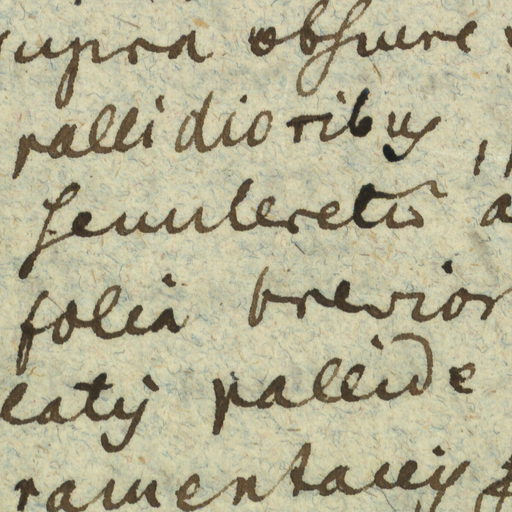 supra obscure
pallidioribus,
folia brevior
latis pallide
ramentaceis